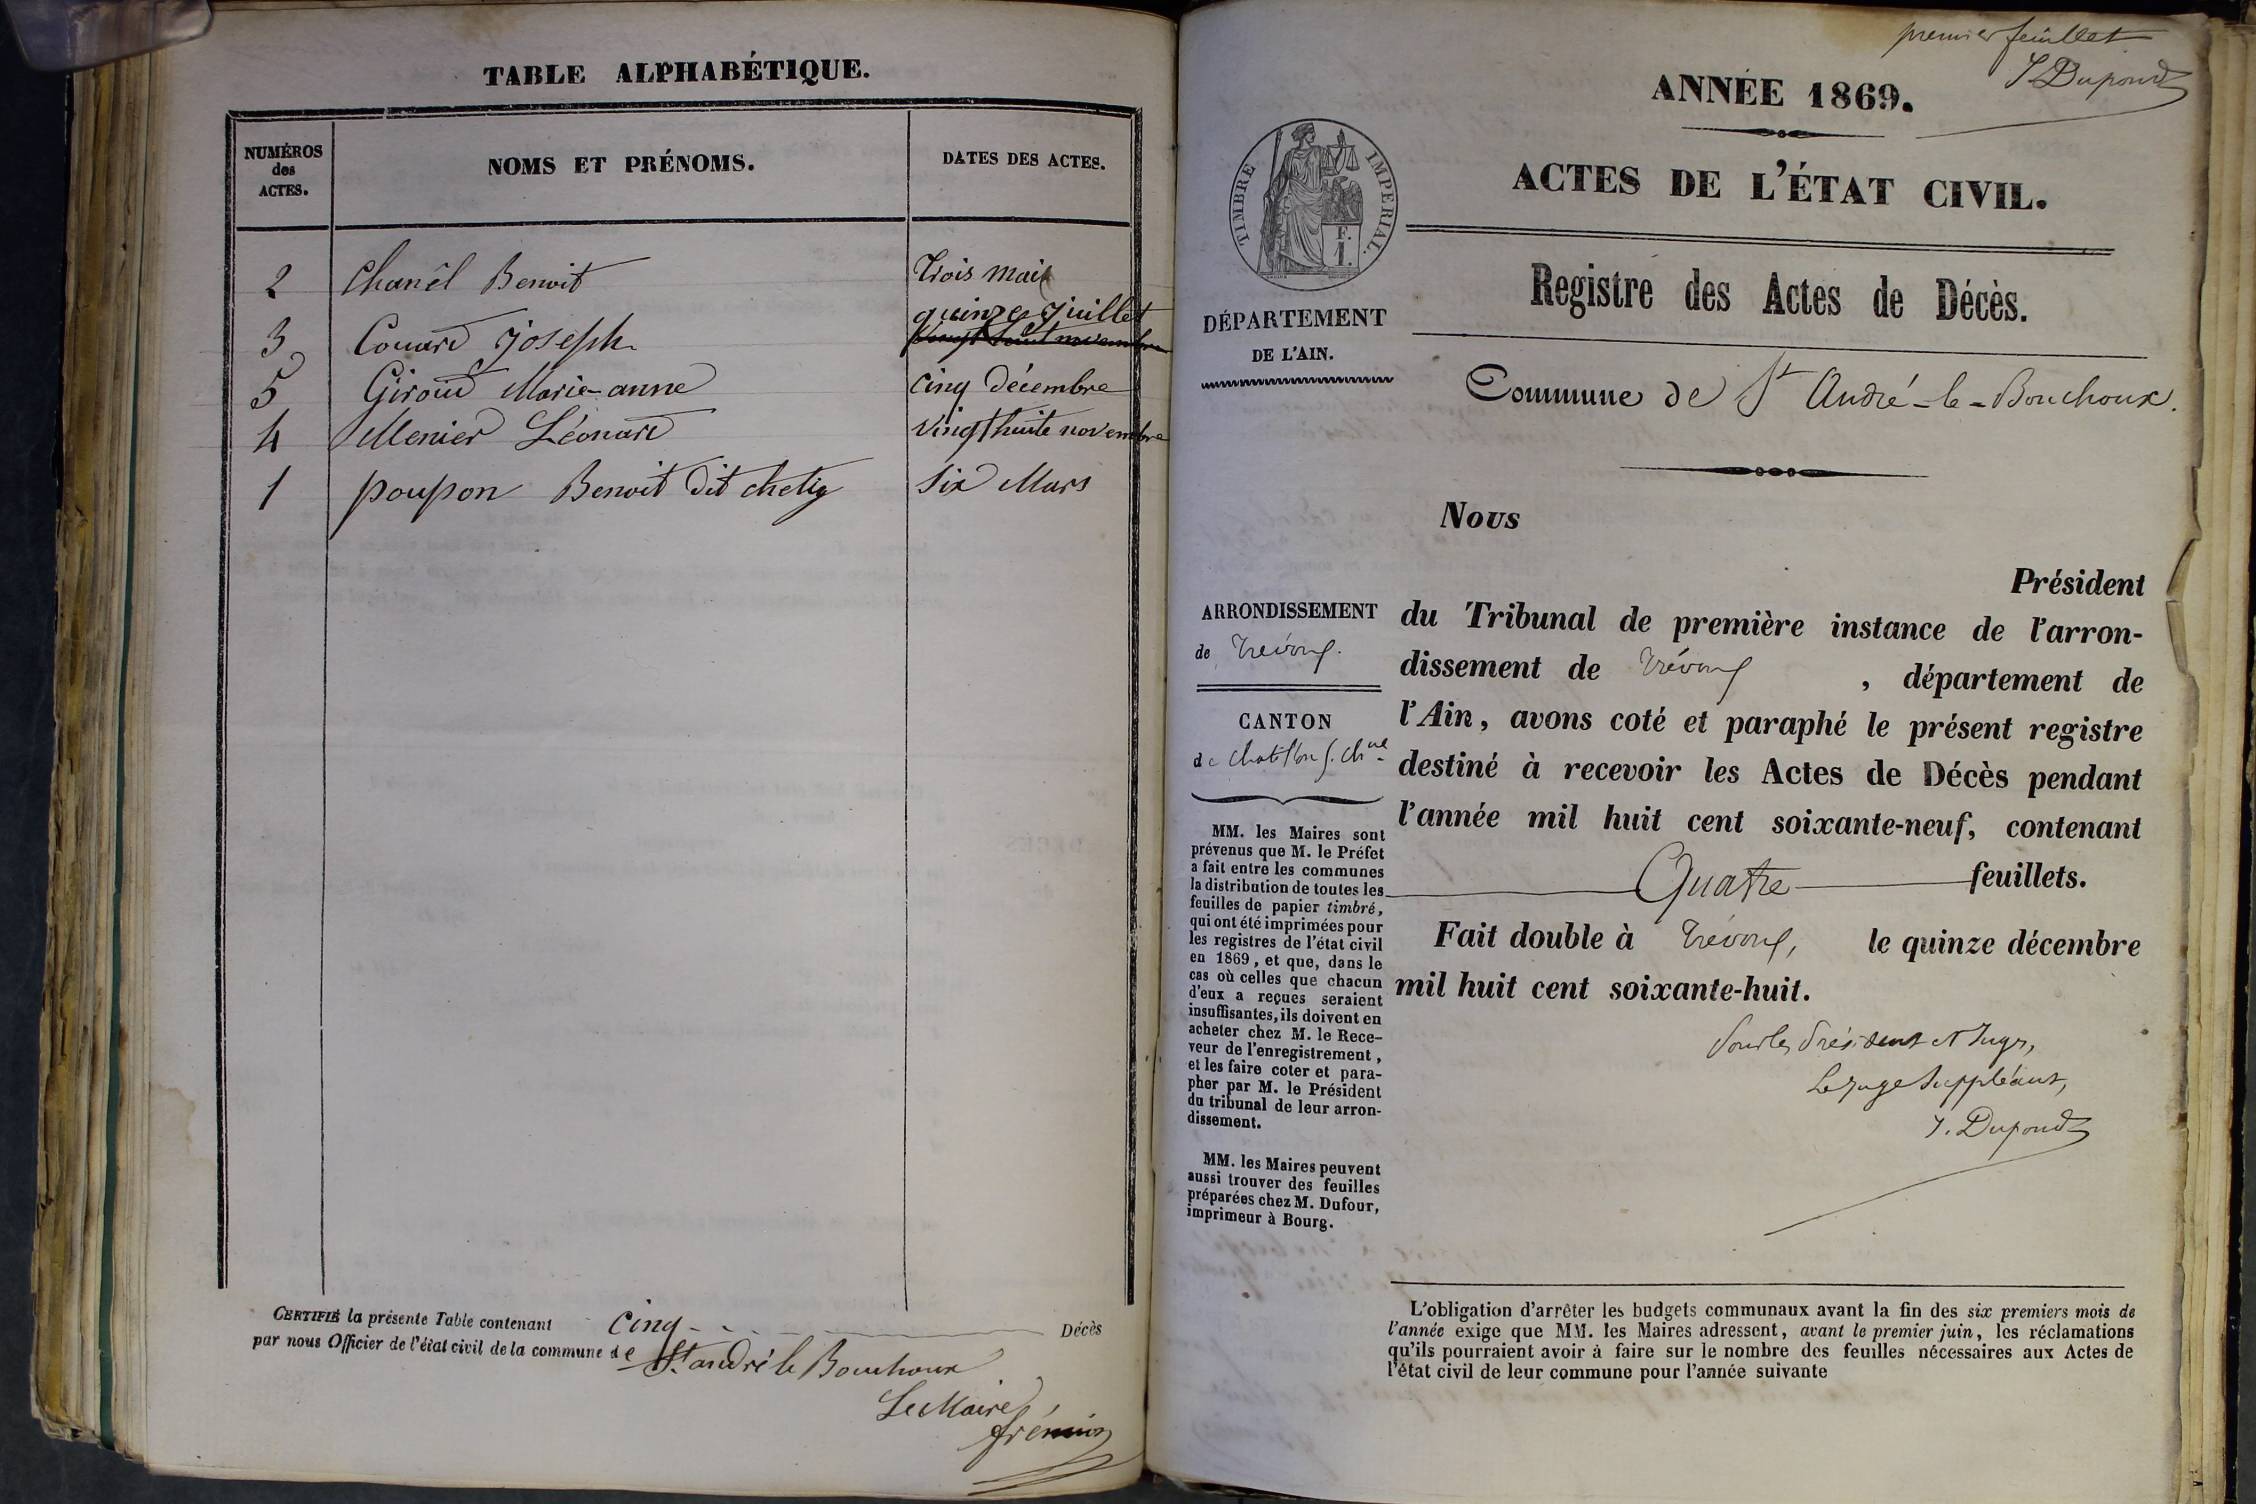 TABLE ALPHABÉTIQUE.
NUMÉROS
des
ACTES.
NOMS ET PRÉNOMS.
DATES DES ACTES.
2 Chanêl Benoit Trois mai
quinze juillet
3 Couard joseph vingt huit novembre
5 Giroud Marie-anne cinq décembre
4 Menier Léonard vingt huite novembre
1 poupon Benoit dit chetig six Mars
CERTIFIÉ la présente Table contenant cinq Décès
par nous Officier de l'état civil de la commune de St. andré le Bouchoux
Le Maire
frémion
premier feuillet
J Dupond
ANNÉE 1869.
ACTES DE L'ÉTAT CIVIL.
TIMBRE IMPÉRIAL.
F.
1.
Registre des Actes de Décès.
DÉPARTEMENT
DE L'AIN.
Commune de St André-le-Bouchoux.
Nous
Président
du Tribunal de première instance de l'arron-
dissement de Trévoux, département de
l'Ain, avons coté et paraphé le présent registre
destiné à recevoir les Actes de Décès pendant
l'année mil huit cent soixante-neuf, contenant
Quatre feuillets.
Fait double à Trévoux, le quinze décembre
mil huit cent soixante-huit.
Pour les Président et Juges,
Le Juge Suppléant,
J. Dupond
ARRONDISSEMENT
de Trévoux.
CANTON
de Chatillon s. Chne
MM. les Maires sont
prévenus que M. le Préfet
a fait entre les communes
la distribution de toutes les
feuilles de papier timbré,
qui ont été imprimées pour
les registres de l'état civil
en 1869, et que, dans le
cas où celles que chacun
d'eux a reçues seraient
insuffisantes, ils doivent en
acheter chez M. le Rece-
veur de l'enregistrement,
et les faire coter et para-
pher par M. le Président
du tribunal de leur arron-
dissement.
MM. les Maires peuvent
aussi trouver des feuilles
préparées chez M. Dufour,
imprimeur à Bourg.
L'obligation d'arrêter les budgets communaux avant la fin des six premiers mois de
l'année exige que MM. les Maires adressent, avant le premier juin, les réclamations
qu'ils pourraient avoir à faire sur le nombre des feuilles nécessaires aux Actes de
l'état civil de leur commune pour l'année suivante